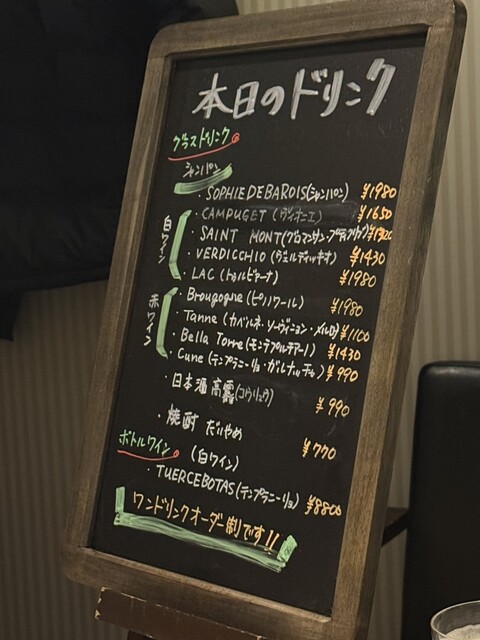 本日のドリンク
グラスドリンク
シャンパン
・SOPHIE DE BAROIS(シャンパン) ¥1980
白ワイン
・CAMPUGET (ヴィオニエ) ¥1650
・SAINT MONT(グロマンサン・プティクルヴ) ¥1320
・VERDICCHIO (ヴェルディッキオ) ¥1430
・LAC (トゥルビアーナ) ¥1980
赤ワイン
・Brougogne (ピノノワール) ¥1980
・Tanne (カベルネ・ソーヴィニョン・メルロ) ¥1100
・Bella Torre (モンテプルチアーノ) ¥1430
・Cune (テンプラニーリョ・ガルナッチャ) ¥990
・日本酒 高露(コウリュウ) ¥990
・焼酎 だいやめ ¥770
ボトルワイン (白ワイン)
・TUERCEBOTAS(テンプラニーリョ) ¥8800
ワンドリンクオーダー制です!!